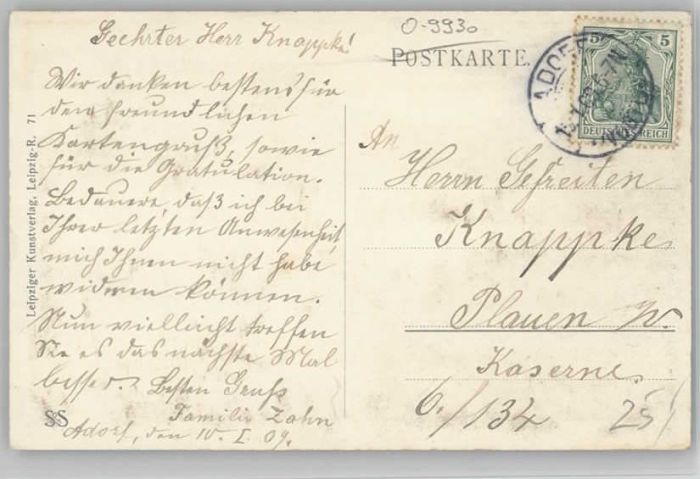 O-9930
Geehrter Herr Knappke!
POSTKARTE.
Wir danken bestens für
den freundlichen
Kartengruß, sowie
für die Gratulation.
Bedauere daß ich bei
Ihrer letzten Anwesenheit
mich Ihnen nicht habe
widmen können.
Nun vielleicht treffen
Sie es das nächste Mal
besser. Besten Gruß
Familie Zahn
Adorf, den 10. I. 09.
SS
Leipziger Kunstverlag, Leipzig-R. 71
5 5
DEUTSCHES REICH
ADORF
An
Herrn Gefreiten
Knappke
Plauen i/V.
Kaserne
6./134 25